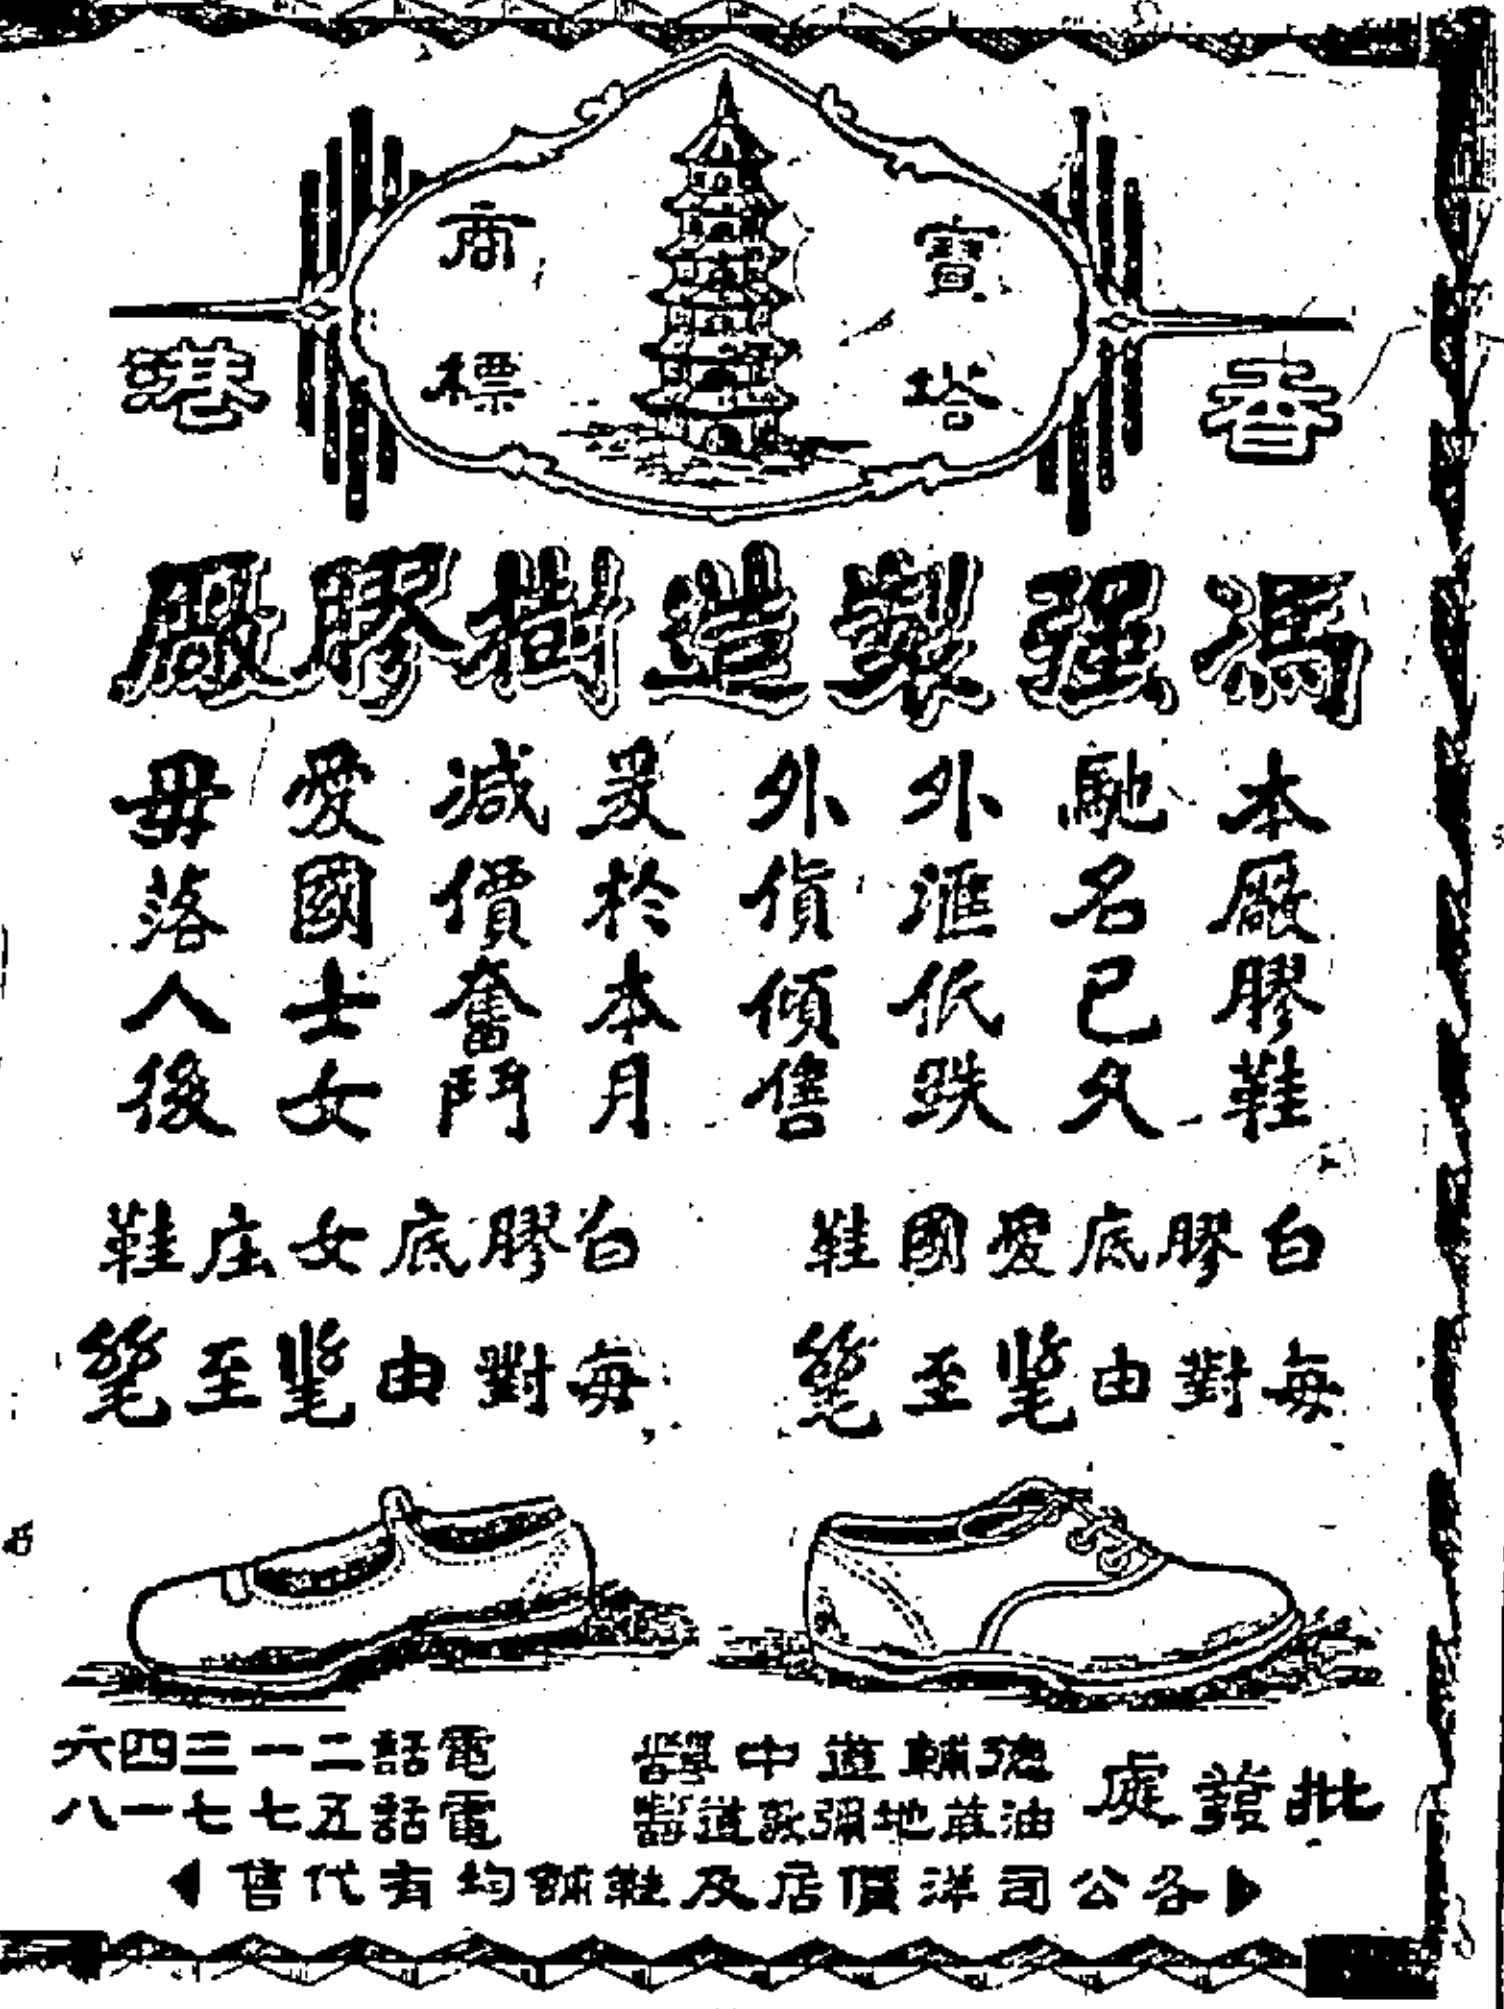 寶塔
商標
香港
馮强製造樹膠廠
本廠膠鞋
馳名已久
外滙低跌
外貨傾售
爰於本月
減價奮鬥
愛國士女
毋落人後
白膠底愛國鞋
每對由 至
白膠底女庄鞋
每對由 至
批發處
德輔道中
電話二一三四六
油蔴地彌敦道
電話五七七一八
各公司洋貨店及鞋舖均有代售